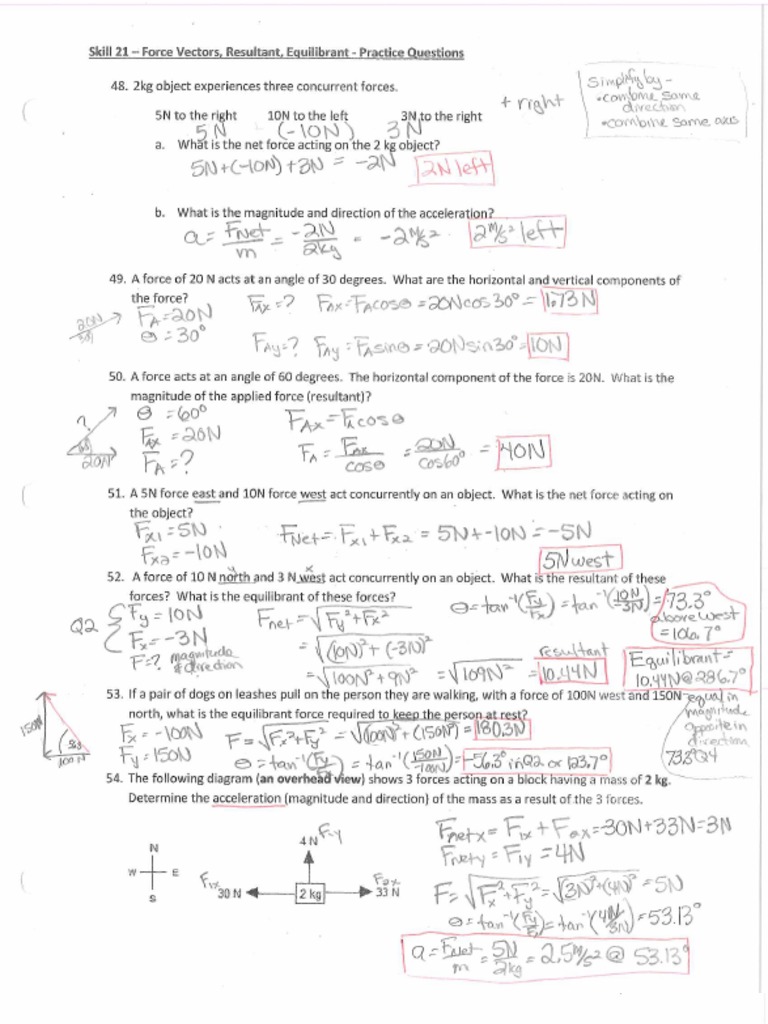 Skill 21 – Force Vectors, Resultant, Equilibrant - Practice Questions
Simplify by -
• combine same
direction
• combine same axis
48. 2kg object experiences three concurrent forces.
+ right
5N to the right 10N to the left 3N to the right
5N (-10N) 3N
a. What is the net force acting on the 2 kg object?
5N+(-10N)+3N = -2N 2N left
b. What is the magnitude and direction of the acceleration?
a = FNet/m = -2N/2kg = -2 m/s² 2 m/s² left
49. A force of 20 N acts at an angle of 30 degrees. What are the horizontal and vertical components of
the force?
20N
30
FA=20N
θ = 30°
FAx=? FAx=FAcosθ=20Ncos30°= 1.73N
FAy=? FAy=FAsinθ=20Nsin30°= 10N
50. A force acts at an angle of 60 degrees. The horizontal component of the force is 20N. What is the
magnitude of the applied force (resultant)?
?
60
20N
θ = 60°
FAx = 20N
FA = ?
FAx=FAcosθ
FA = FAx/cosθ = 20N/cos60° = 40N
51. A 5N force east and 10N force west act concurrently on an object. What is the net force acting on
the object?
Fx1=5N
Fx2=-10N
FNet = Fx1+Fx2 = 5N+-10N=-5N
5N west
y x
52. A force of 10 N north and 3 N west act concurrently on an object. What is the resultant of these
forces? What is the equilibrant of these forces?
Q2
Fy=10N
Fx=-3N
F=? magnitude
& direction
Fnet=√Fy²+Fx²
=√(10N)²+(-3N)²
=√100N²+9N² =√109N² = 10.44N
resultant
θ=tan⁻¹(Fy/Fx)=tan⁻¹(10N/-3N)=73.3°
above west
=106.7°
Equilibrant=
10.44N@286.7°
equal in
magnitude
opposite in
direction
73.3 Q4
53. If a pair of dogs on leashes pull on the person they are walking, with a force of 100N west and 150N
north, what is the equilibrant force required to keep the person at rest?
150N
56.3
100N
Fx=-100N
Fy=150N
F=√Fx²+Fy² =√(100N)²+(150N)² = 180.3N
θ=tan⁻¹(Fy/Fx)=tan⁻¹(150N/-100N)=-56.3° in Q2 or 123.7°
54. The following diagram (an overhead view) shows 3 forces acting on a block having a mass of 2 kg.
Determine the acceleration (magnitude and direction) of the mass as a result of the 3 forces.
N
W E
S
4N F1y
F1x
30 N
2 kg
F2x
33 N
Fnetx = F1x + F2x=30N+33N=3N
Fnety = F1y =4N
F=√Fx²+Fy² =√(3N)²+(4N)² =5N
θ=tan⁻¹(Fy/Fx)=tan⁻¹(4N/3N)=53.13°
a=FNet/m=5N/2kg=2.5 m/s² @ 53.13°